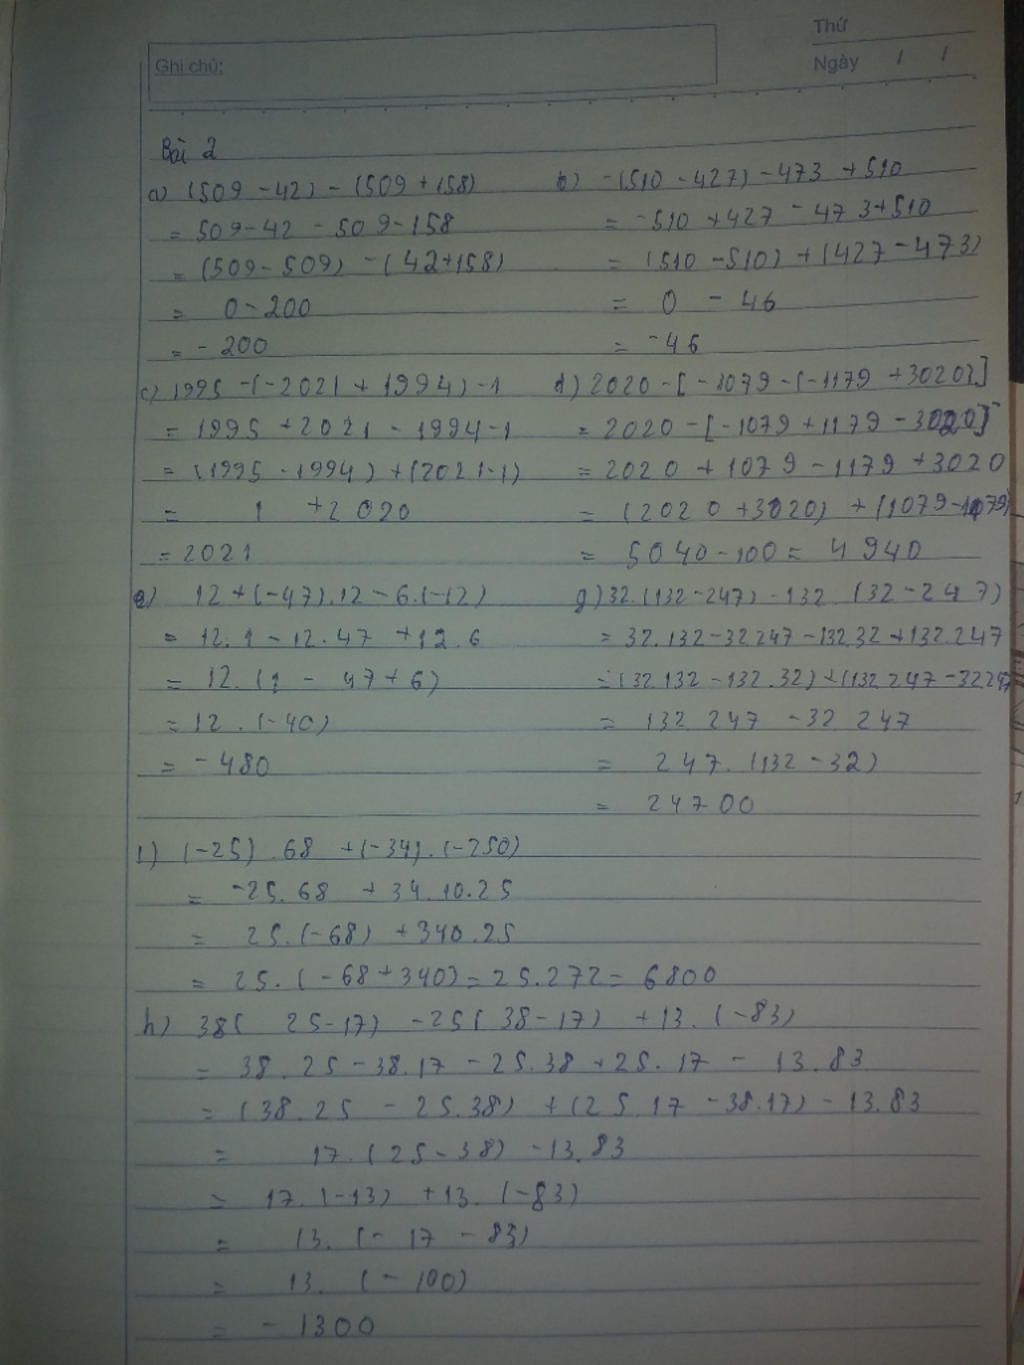 Thứ
Ghi chú:
Ngày / /
Bài 2
a) (509 - 42) - (509 + 158)
= 509 - 42 - 509 - 158
= (509 - 509) - (42 + 158)
= 0 - 200
= - 200
b) -(510 - 427) - 473 + 510
= -510 + 427 - 473 + 510
= (510 - 510) + (427 - 473)
= 0 - 46
= -46
c) 1995 - (-2021 + 1994) - 1
= 1995 + 2021 - 1994 - 1
= (1995 - 1994) + (2021 - 1)
= 1 + 2020
= 2021
d) 2020 - [-1079 - (-1179 + 3020)]
= 2020 - [-1079 + 1179 - 3020]
= 2020 + 1079 - 1179 + 3020
= (2020 + 3020) + (1079 - 1179)
= 5040 - 100 = 4940
e) 12 + (-47).12 - 6.(-12)
= 12.1 - 12.47 + 12.6
= 12.(1 - 47 + 6)
= 12.(-40)
= -480
g) 32.(132 - 247) - 132 (32 - 247)
= 32.132 - 32.247 - 132.32 + 132.247
= (32.132 - 132.32) + (132.247 - 32.247
= 132 247 - 32 247
= 247.(132 - 32)
= 24700
f) (-25).68 + (-34).(-250)
= -25.68 + 34.10.25
= 25.(-68) + 340.25
= 25.(-68 + 340) = 25.272 = 6800
h) 38( 25 - 17) - 25( 38 - 17) + 13.(-83)
= 38.25 - 38.17 - 25.38 + 25.17 - 13.83
= (38.25 - 25.38) + (25.17 - 38.17) - 13.83
= 17.(25 - 38) - 13.83
= 17.(-13) + 13.(-83)
= 13.(- 17 - 83)
= 13. (-100)
= - 1300